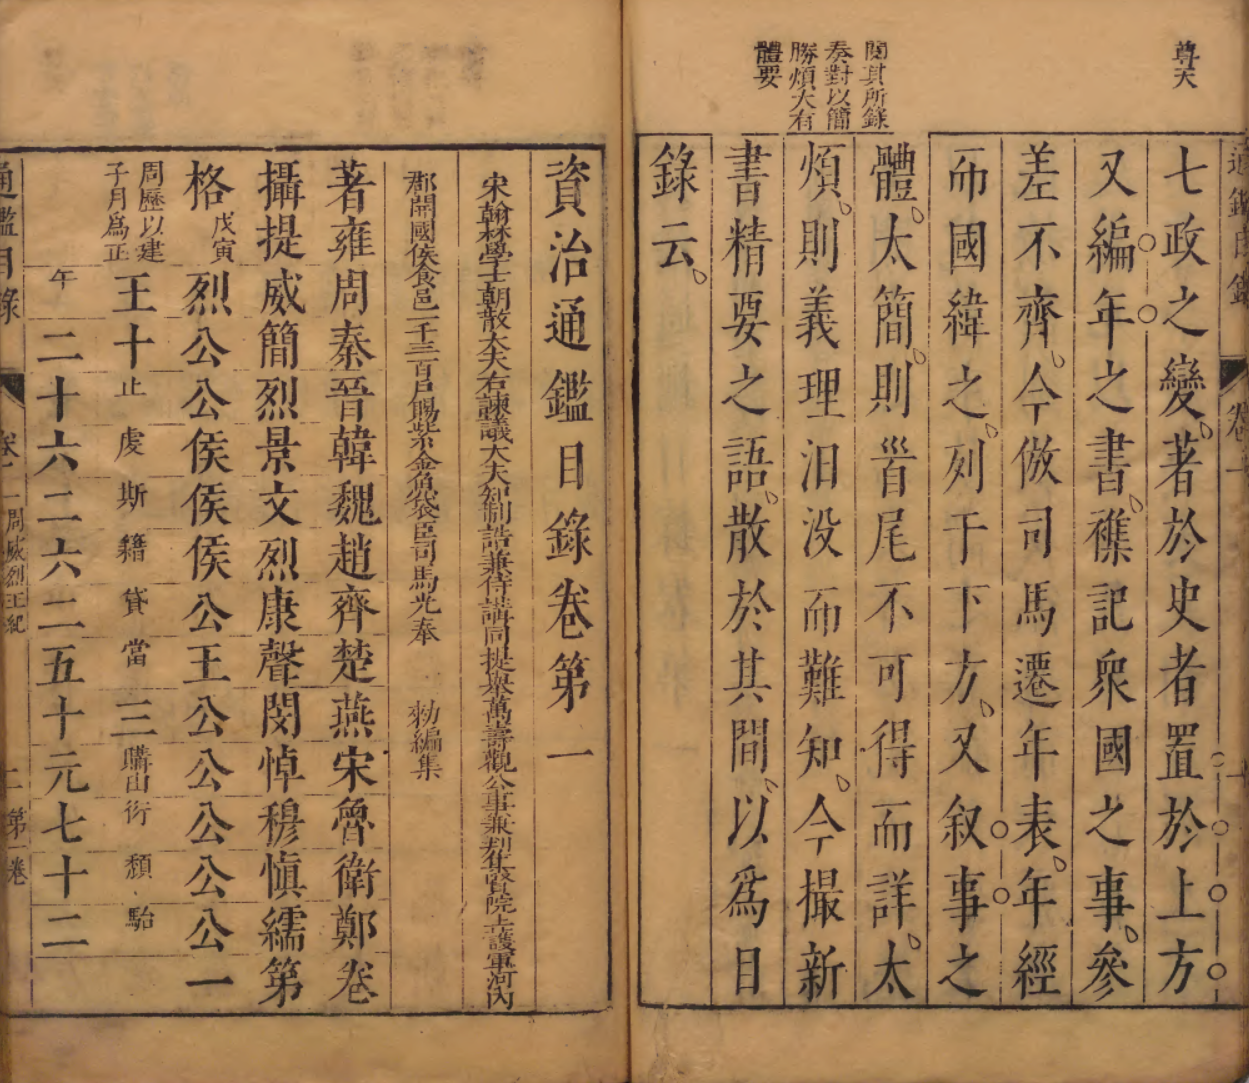 尊天
七政之變著於史者置於上方
又編年之書襍記衆國之事參
差不齊今倣司馬遷年表年經
而國緯之列于下方又叙事之
體太簡則首尾不可得而詳太
閱其所錄
奏對以簡
勝煩大有
體要
煩則義理汩没而難知今撮新
書精要之語散於其間以爲目
錄云
資治通鑑目錄卷第一
宋翰林學士朝散大夫右諫議大夫知制誥兼侍講同提舉萬壽觀公事兼判集賢院上護軍河內
郡開國侯食邑一千三百戶賜紫金魚袋臣司馬光奉 勅編集
著雍周秦晉韓魏趙齊楚燕宋魯衛鄭卷
攝提威簡烈景文烈康聲閔悼穆慎繻第
格戊寅烈公公侯侯侯公王公公公公公一
周歷以建
子月爲正
王十止虔斯籍貸當三
年二十六二六二五十元七十二
通鑑目錄
卷一
周威烈王紀
第一卷